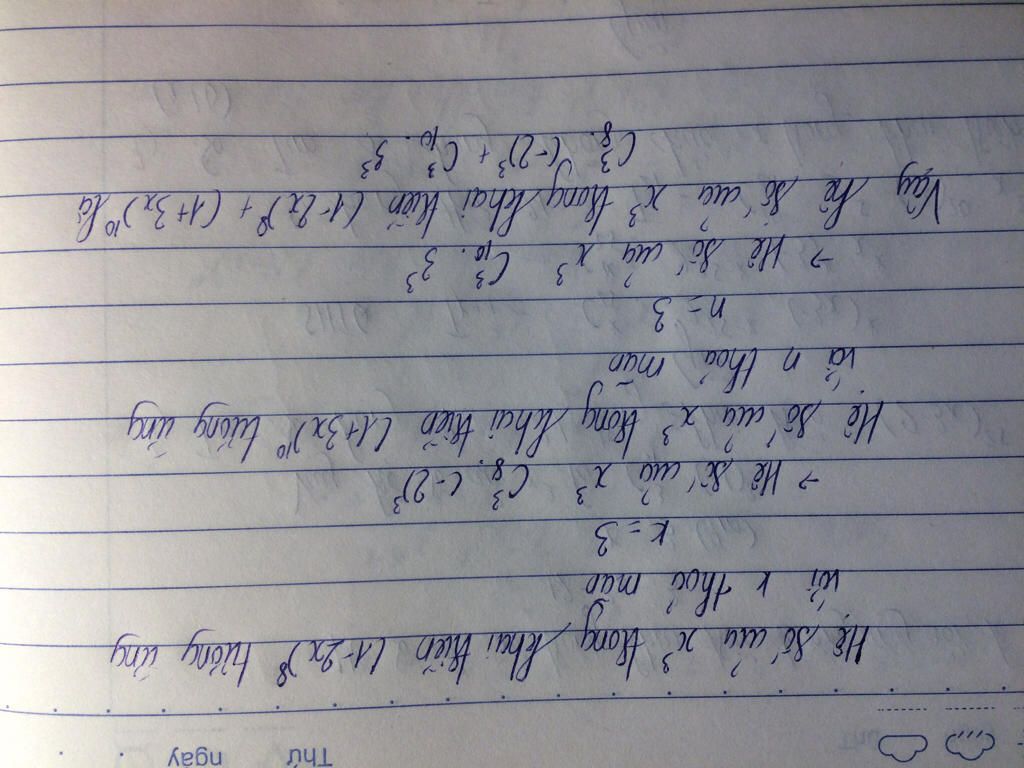 Thứ ngày
Hệ số của x³ trong khai triển (1-2x)⁸ tương ứng
với k thoả mãn
k = 3
→ Hệ số của x³ C₈³.(-2)³
Hệ số của x³ trong khai triển (1+3x)¹⁰ tương ứng
với n thoả mãn
n = 3
→ Hệ số của x³ C₁₀³.3³
Vậy hệ số của x³ trong khai triển (1-2x)⁸ + (1+3x)¹⁰ là
C₈³.(-2)³ + C₁₀³.3³